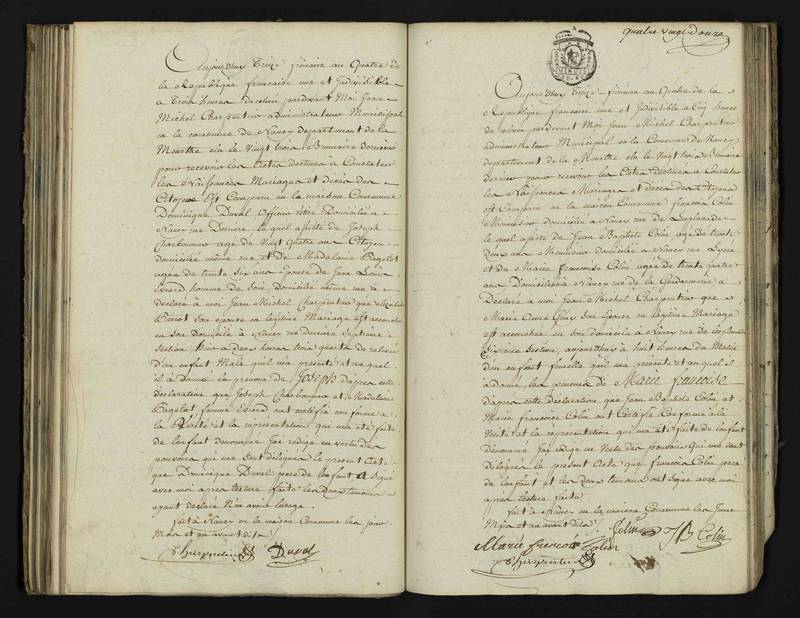 Aujourdhuy Treize frimaire au Quatre de
la Republique francaise une et Indivisible
a Trois heures de relevée pardevant Moi Jean
Michel Charpentier administrateur Municipal
en la commune de Nancy departement de la
Meurthe elu le Vingt trois Brumaire dernier
pour recevoir les Actes destinés a Constater
les Naissances Mariages et décès des
Citoyens Est Comparu en la maison Commune
Dominique Duval Officier retiré Domicilié a
Nancy rue Derriere lequel assisté de Joseph
Charbonnier age de Vingt Quatre ans Citoyen
domicilié même rue et de Madelaine Bagelot
agée de trente six ans Epouse de Jean Louis
homme de Loi Domicilié même rue a
declaré a moi Jean Michel Charpentier que
son epouse en legitime Mariage est accouchée
en son Domicile a Nancy rue derriere Septieme
Section hier a Deux heures trois quarts de relevée
d'un enfant Male quil m'a présenté et au quel
il a donné le prenom de Joseph d'apres cette
declaration que Joseph Charbonnier et Madelaine
Bagelot femme ont certifié conforme a
la Verité et la representation qui m'a été faite
de l'enfant denommé J'ai redigé en vertu des
pouvoirs qui me sont délégués le present Acte
que Dominique Duval pere de l'enfant A Signé
avec moi apres lecture faite les deux temoins
ayant declaré N'en avoir lusage.
fait a Nancy en la maison Commune les jour
Mois et an avant dits.
Charpentier Duval
quatre vingt Douze
Aujourdhuy Treize frimaire au Quatre de la
Republique francaise une et Indivisible a Cinq heures
de relevee pardevant Moi Jean Michel Charpentier
administrateur Municipal en la Commune de Nancy
departement de la Meurthe elu le Vingt trois Brumaire
dernier pour recevoir les Actes Destinés a Constater
les Naissances Mariages et deces des Citoyens
est Comparu en la maison Commune francois Colin
Menuisier domicilié a Nancy rue de Lesplanade
le quel assisté de Jean Baptiste Colin agé de trente
Deux ans Menuisier domicilié a Nancy rue
et de Marie Francoise Colin agée de trente quatre
ans Domiciliée a Nancy rue de la Gendarmerie a
Declaré a moi Jean Michel Charpentier que
Marie Anne son Epouse en legitime Mariage
est accouchée en son domicile a Nancy rue de lesplanade
Sixieme Section, aujourdhuy a huit heures du Matin
d'un enfant femelle quil m'a présenté et au quel il
a donné les prenoms de Marie francoise
D'apres cette declaration que Jean Baptiste Colin et
Marie francoise Colin ont Certifié Conforme a la
Verité et la representation qui m'a été faite de l'enfant
dénommé J'ai redigé en Vertu des pouvoirs qui me sont
délégués le present Acte que francois Colin pere
de l'enfant et les deux temoins ont signé avec moi
apres lecture faite
fait a Nancy en la maison Commune les Jour
Mois et an avant dits. Colin JB Colin
Marie francoise Colin
Charpentier